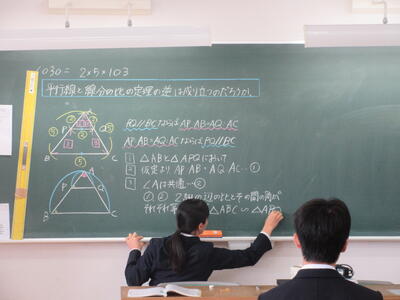 1030 = 2×5×103
平行線と線分の比の定理の逆は成り立つのだろうか。
A
P
Q
B
C
PQ//BCならば AP:AB=AQ:AC
AP:AB=AQ:ACならばPQ//BC
1 △ABCと△APQにおいて
2 仮定より AP:AB=AQ:AC…①
3 ∠Aは共通…②
①②2組の辺の比とその間の角が
それぞれ等 △ABC∽△AP
A
P
Q
B
C